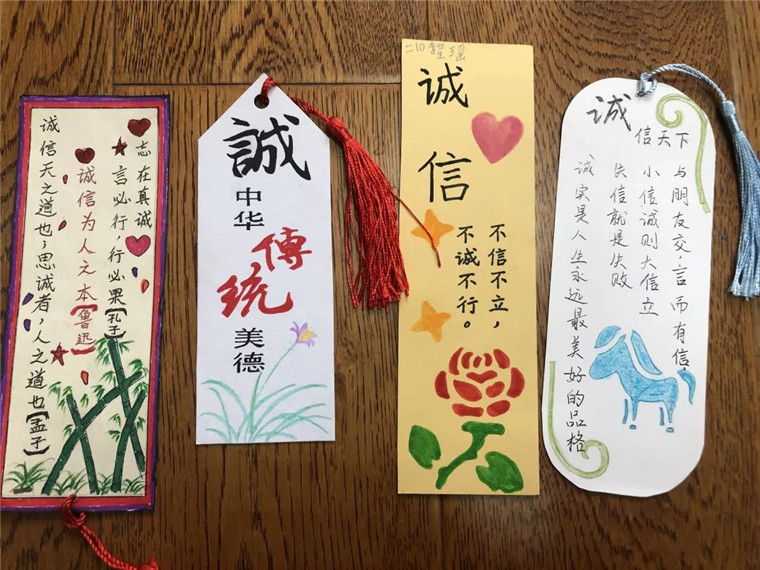 志在真诚
言必行，行必果【孔子】
诚信为人之本【鲁迅】
诚信天之道也，思诚者，人之道也【孟子】
誠
中华
傳統
美德
诚信
不信不立，
不诚不行。
诚信天下
与朋友交，言而有信
小信诚则大信立
失信就是失败
诚实是人生永远最美好的品格